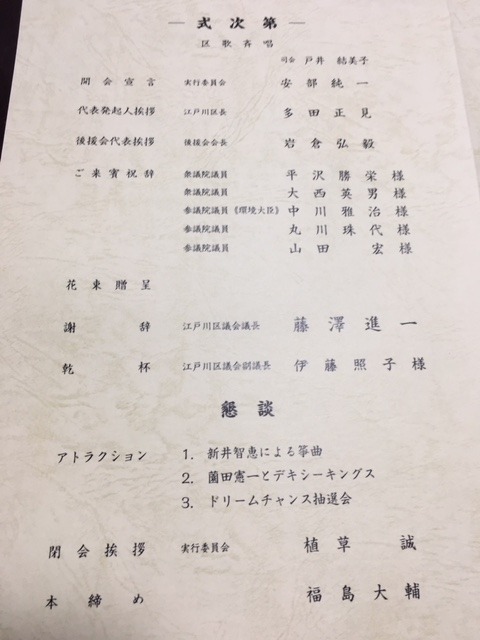 ― 式次第 ―
区歌斉唱
司会 戸井 結美子
開会宣言 実行委員会 安部純一
代表発起人挨拶 江戸川区長 多田正見
後援会代表挨拶 後援会会長 岩倉弘毅
ご来賓祝辞 衆議院議員 平沢勝栄様
衆議院議員 大西英男様
参議院議員《環境大臣》 中川雅治様
参議院議員 丸川珠代様
参議院議員 山田 宏様
花束贈呈
謝辞 江戸川区議会議長 藤澤進一
乾杯 江戸川区議会副議長 伊藤照子様
懇談
アトラクション 1. 新井智恵による箏曲
2. 薗田憲一とデキシーキングス
3. ドリームチャンス抽選会
閉会挨拶 実行委員会 植草 誠
本締め 福島大輔